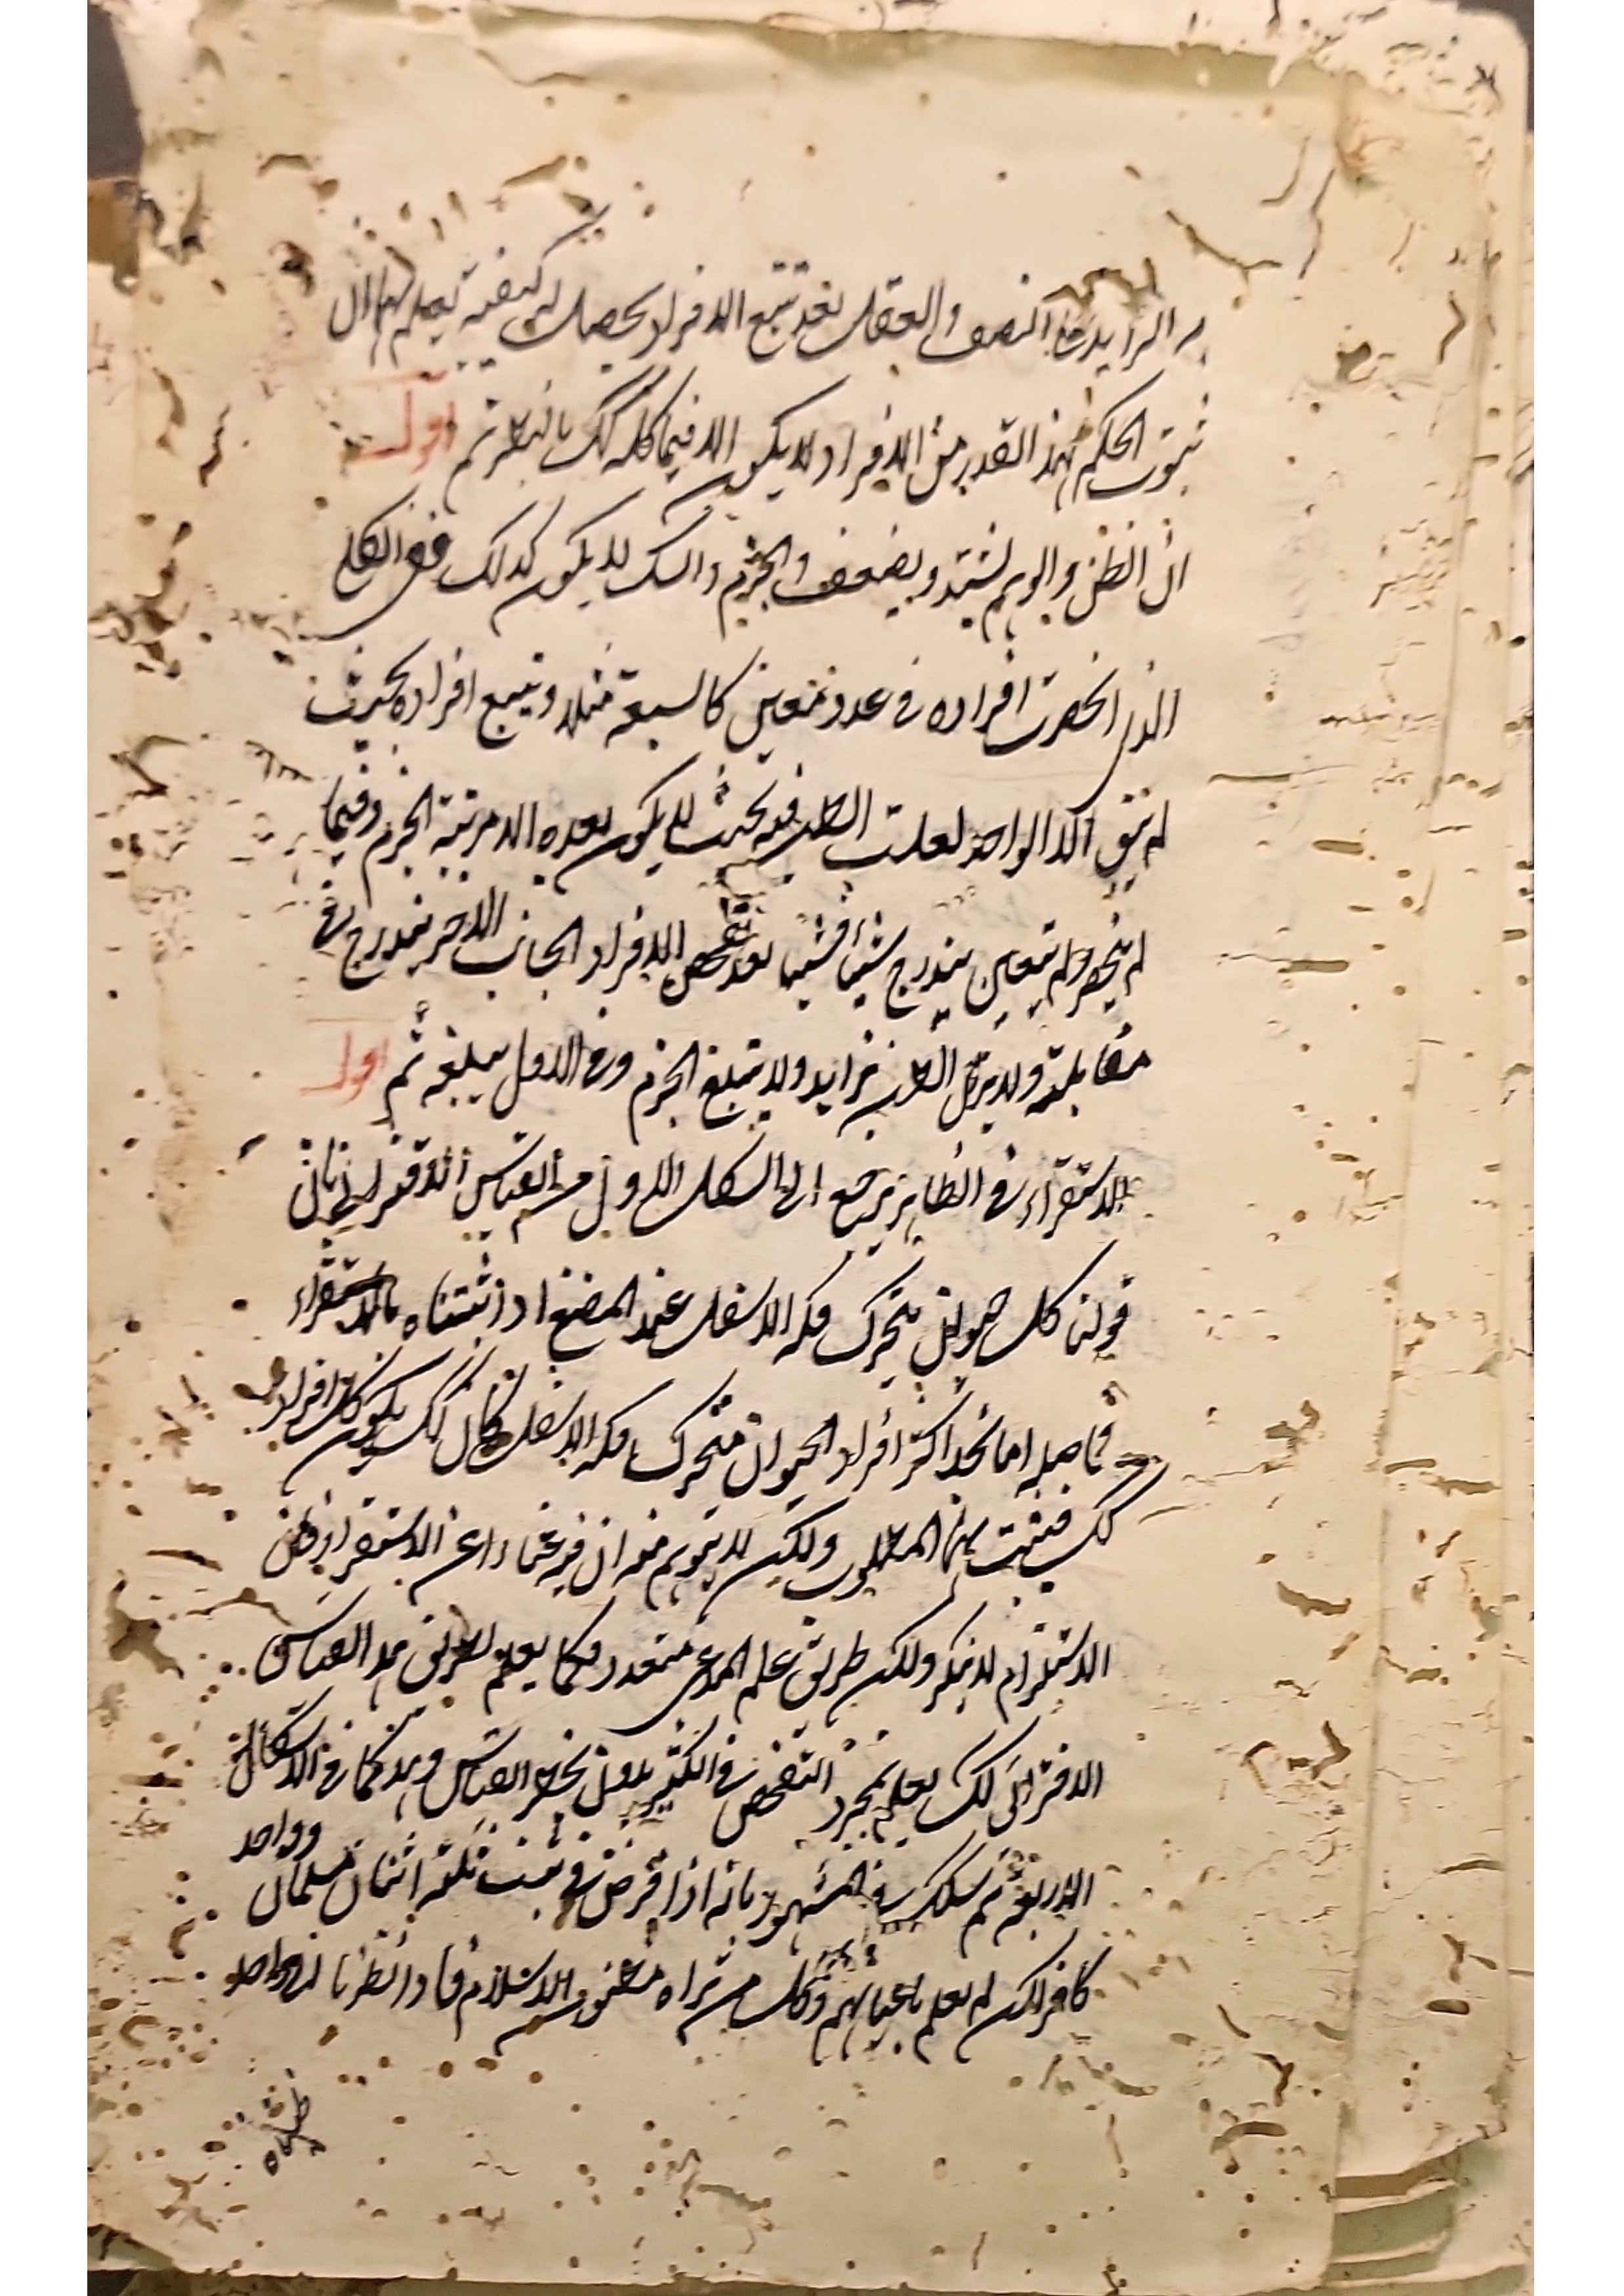 الزايد على النصف والعقل بعد تتبع الافراد يحصل له كيفية يعلم بها ان
ثبوت الحكم بهذا القدر من الافراد لا يكون الا فيما كله كك بالنظر ثم اقول
ان الظن والوهم يشتد ويضعف والجزم والشك لا يكون كذلك ففي الكلي
الذي انحصرت افراده في عدد معين كالسبعة مثلا وتتبع افراده بحيث
لم يبق الا الواحد لغلبت الظن فيه بحيث لا يكون بعده الا مرتبة الجزم وفيما
لم ينحصر ولم يتعين يندرج شيئا فشيئا بعد تفحص الافراد الجانب الاخر يندرج في
مقابلته ولا يزال الظن تزايد ولا تبلغ الجزم وفي الاول يبلغه ثم اقول
الاستقراء في الظاهر يرجع الى الشكل الاول من القياس الاقتراني فان
قولنا كل حيوان يتحرك فكه الاسفل عند المضغ اذا اثبتناه بالاستقراء
فحاصله انا نجد اكثر افراد الحيوان متحرك فكه الاسفل وكل كك يكون كل افراده
كك فيثبت بهذا المطلوب ولكن لا يتوهم منه ان فيه غناء عن الاستقراء فان
الاستلزام لا ينكر ولكن طريق علم المدعى متعدد فكما يعلم بطريق هذا القياس
الاقتراني كك يعلم بمجرد التفحص في الكثير بدون نحو القياس وهذا كما في الاشكال
الاربعة ثم سلك في المشهور بانه اذا فرض في بيت ثلثة اثنان مسلمان وواحد
كافر لكن لم يعلم باعيانهم فكل من نراه مظنون الاسلام فاذا نظرنا الى واحد